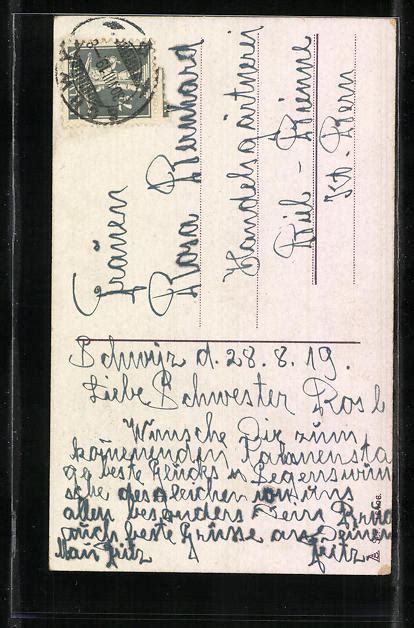 Fräulein
Rosa Bernhard
Handelsgärtnerei
Biel - Bienne
Kt. Bern
Schwiz d. 28.8.19.
Liebe Schwester Rosl
Wünsche Dir zum
kommenden Namensta
ge beste Glücks u Segenswün
sche desgleichen von uns
allen besonders Dein Brud
auch beste Grüsse an Deinen
Fritz